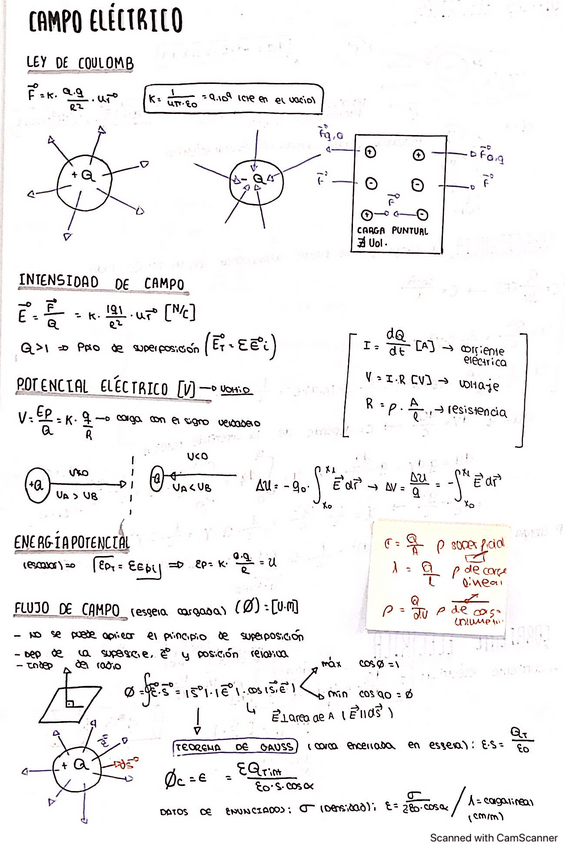 CAMPO ELÉCTRICO
LEY DE COULOMB
F = K · Q·q / R² · ur
K = 1 / 4π·ε0 = 9·10⁹ (cte en el vacío)
+Q
- Q
Fq,Q
+ +
FQ,q
F
- -
F
F
+ -
CARGA PUNTUAL
∄ Vol.
INTENSIDAD DE CAMPO
E = F / Q = K · |q| / R² · ur [N/C]
Q>1 ⇒ Ppio de superposición (ET = ΣEi)
I = dQ / dt [A] → corriente
eléctrica
V = I·R [V] → voltaje
R = ρ · A / l → resistencia
POTENCIAL ELÉCTRICO [V] → voltio
V = Ep / Q = K · q / R → carga con el signo verdadero
+Q
VA > VB
U<0
VA < VB
ΔU = -q0 · ∫ E dr → ΔV = ΔU / q = - ∫ E dr
x1
x0
ENERGÍA POTENCIAL
(escalar) ⇒ EpT = ΣEpi ⇒ Ep = K · Q·q / R = U
σ = Q / A ρ superficial
λ = Q / l ρ de carga
lineal
ρ = Q / dv ρ de carga
FLUJO DE CAMPO (esfera cargada) (Ø) = [V·M]
- No se puede aplicar el principio de superposición
- Dep de la superficie, E y posición relativa
- Indep del radio
Ø = ∮ E·S = |S|·|E|·cos(S,E)
máx cos0 = 1
min cos90 = Ø
E ⊥ area de A (E || dS)
+ Q
E
dS
TEOREMA DE GAUSS (carga encerrada en esfera): E·S = QT / ε0
ØC = E = ΣQTint / ε0·S·cosα
DATOS DE ENUNCIADOS: σ (densidad); E = σ / 2ε0·cosα / λ = carga lineal
(c/m)
Scanned with CamScanner